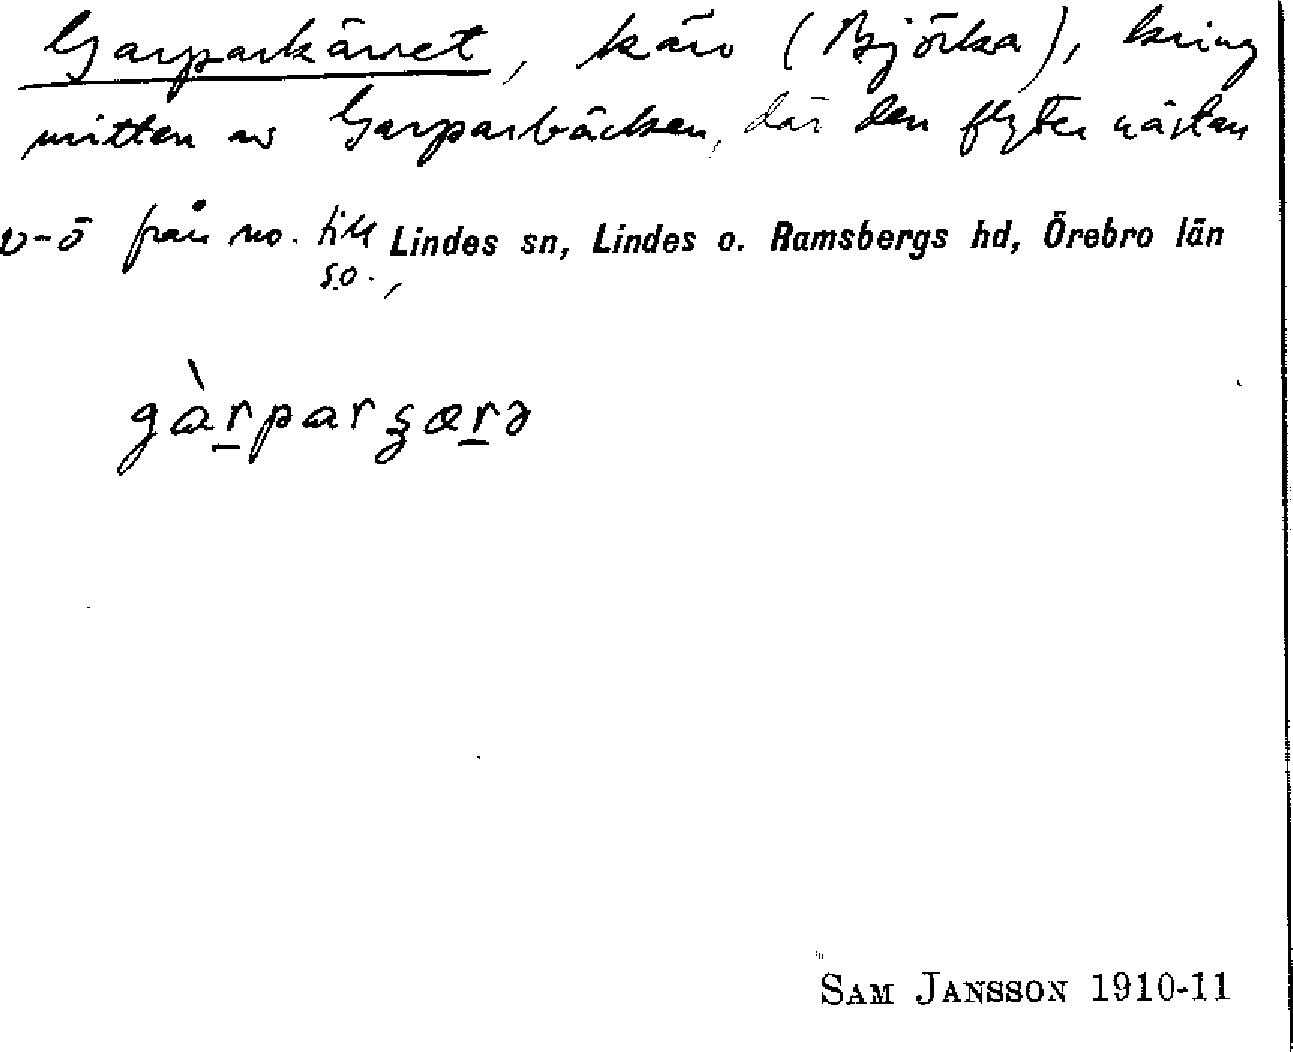 Garparkärret, kärr (Björka), kring
mitten av Garparbäcken, där den flyter nästan
v-ö från no. till Lindes sn, Lindes o. Ramsbergs hd, Örebro län
s.o.,
gàrparʒærə
SAM JANSSON 1910-11